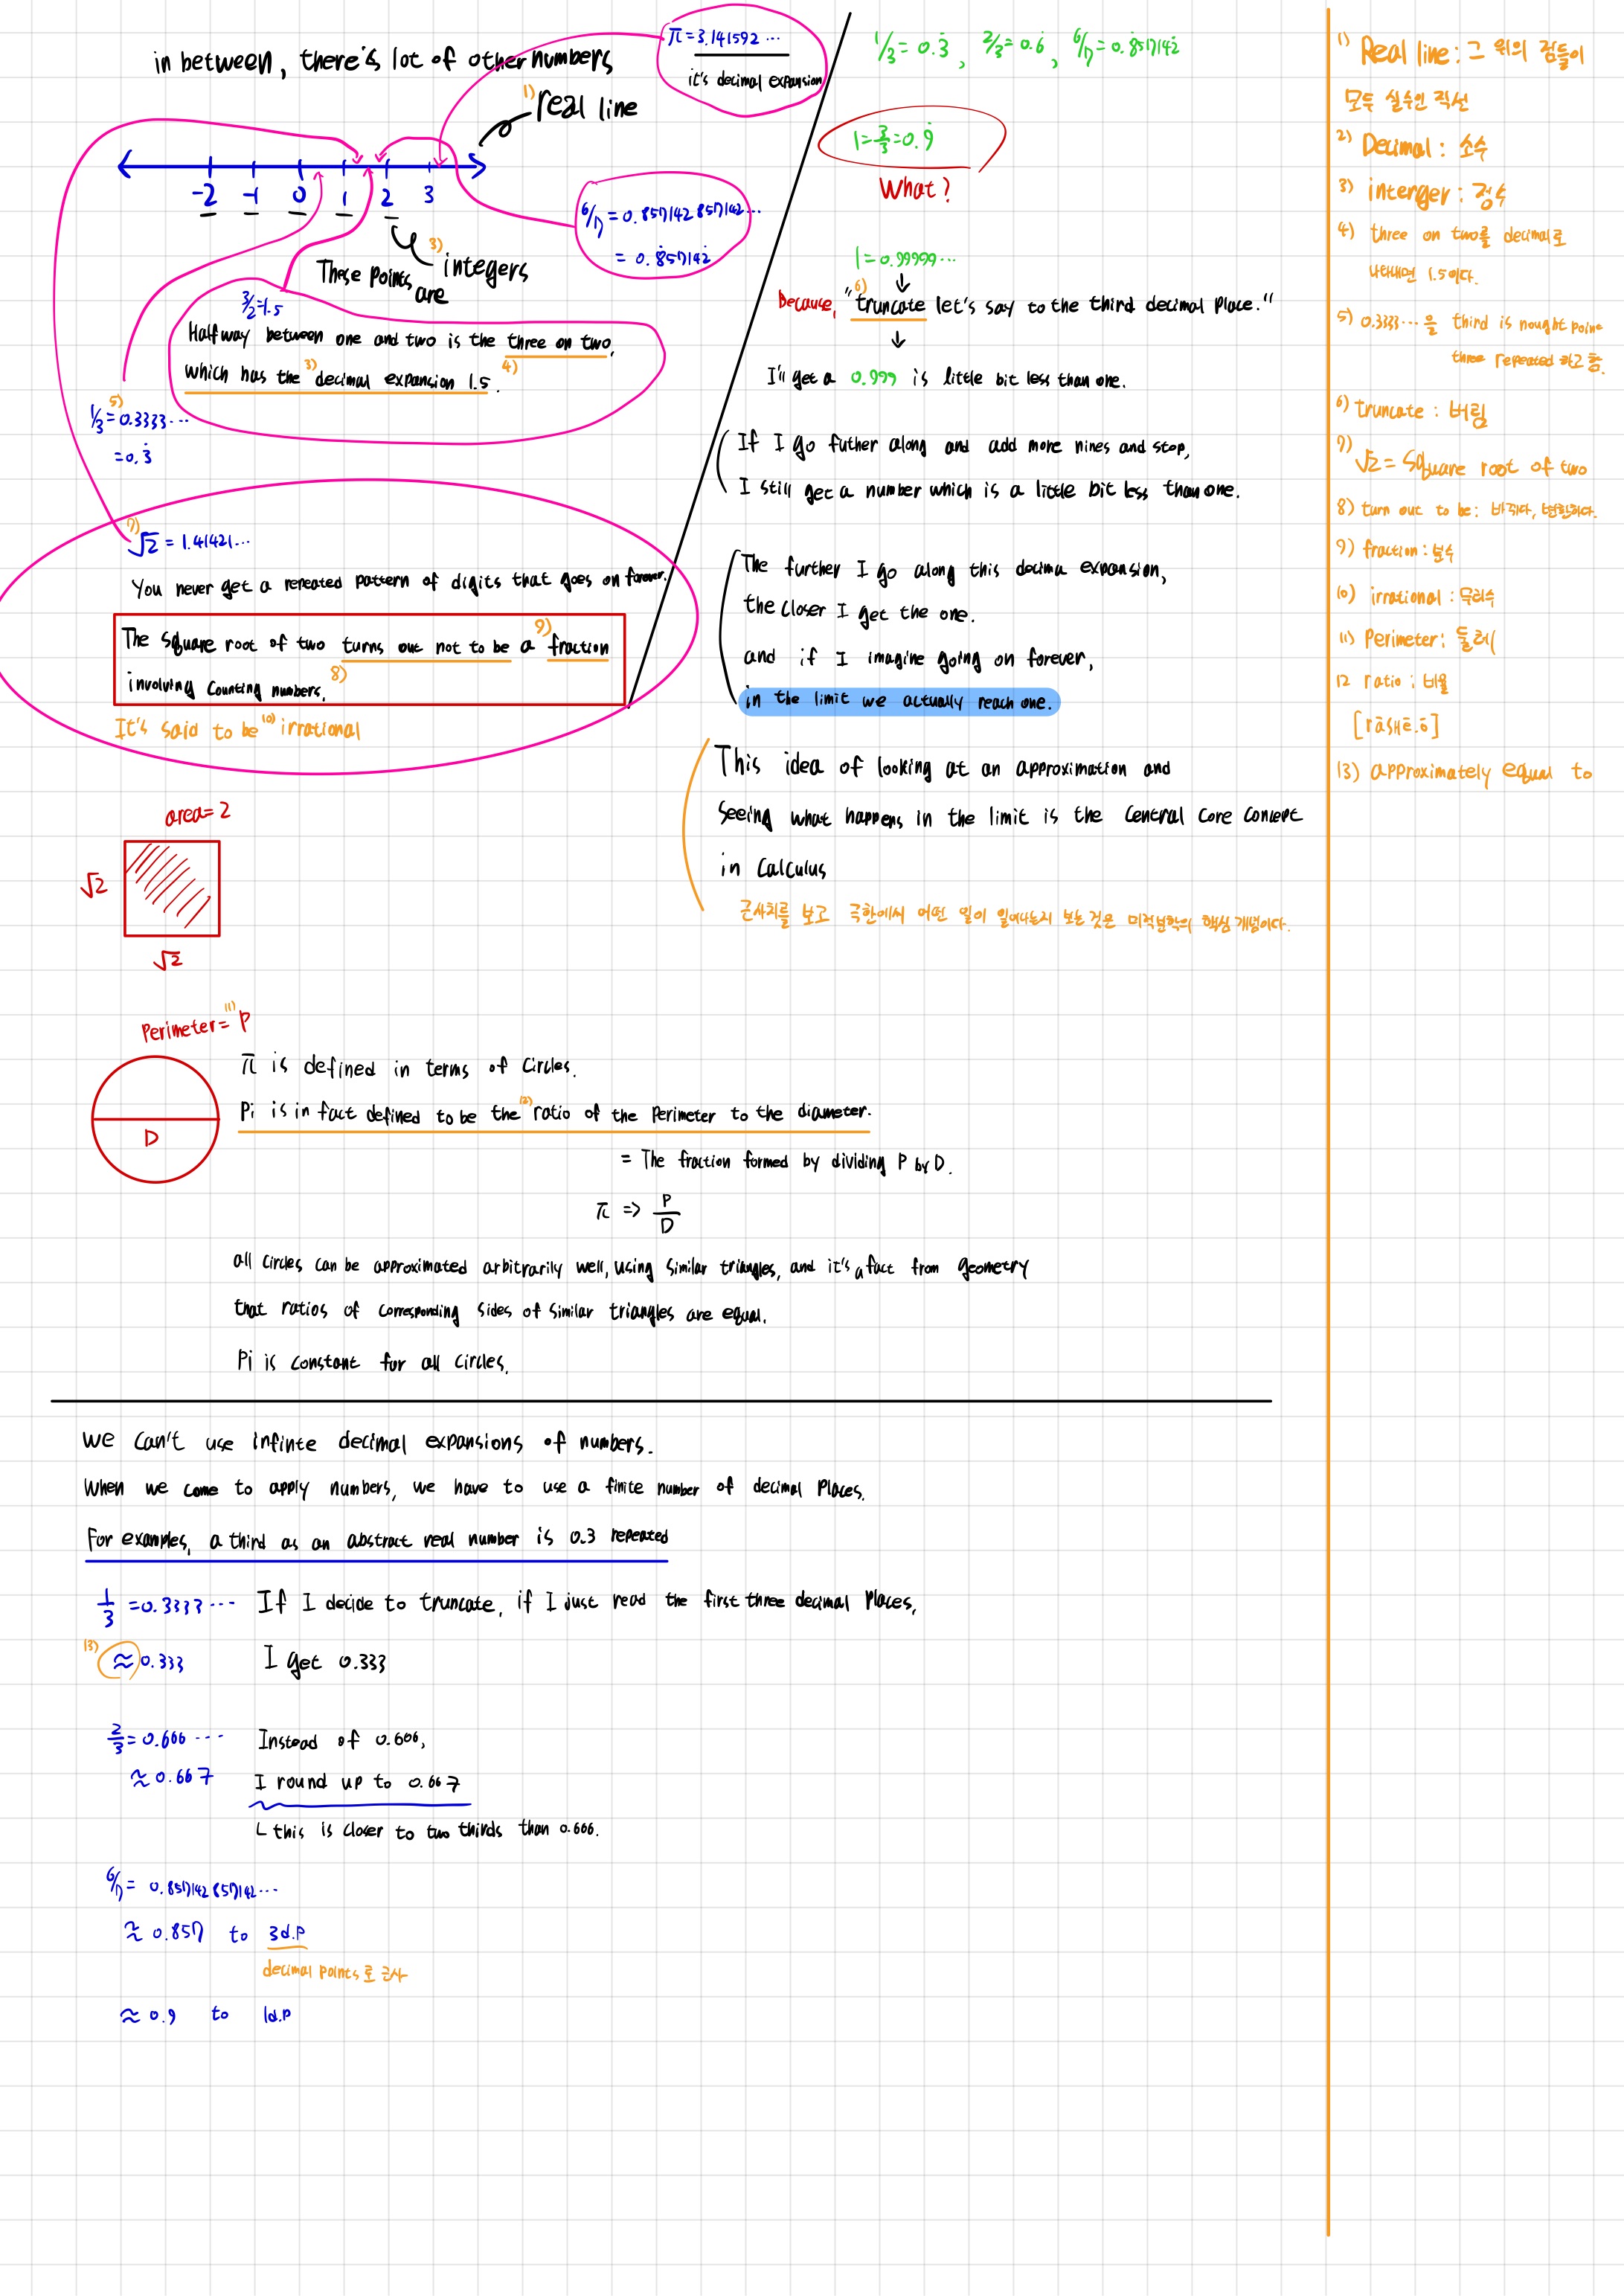 in between, there's lot of other numbers
π=3.141592 ···
it's decimal expansion
1) real line
-2 -1 0 1 2 3
6/7 = 0.857142857142···
= 0.8̇57142̇
These points are 3) integers
3/2=1.5
Halfway between one and two is the three on two,
which has the 3) decimal expansion 1.5. 4)
5)
1/3=0.3333···
=0.3̇
7) √2 = 1.41421···
You never get a repeated pattern of digits that goes on forever.
The square root of two turns out not to be a 9) fraction
involving counting numbers. 8)
It's said to be 10) irrational
area=2
√2
√2
Perimeter= 11) P
D
π is defined in terms of circles.
Pi is in fact defined to be the 12) ratio of the perimeter to the diameter.
= The fraction formed by dividing P by D.
π => P/D
all circles can be approximated arbitrarily well, using similar triangles, and it's a fact from geometry
that ratios of corresponding sides of similar triangles are equal.
Pi is constant for all circles.
1/3=0.3̇, 2/3=0.6̇, 6/7=0.8̇57142̇
1=3/3=0.9̇
What?
1=0.99999···
↓
Because, "6) truncate let's say to the third decimal place."
↓
I'll get a 0.999 is little bit less than one.
If I go futher along and add more nines and stop,
I still get a number which is a little bit less than one.
The further I go along this decima expansion,
the closer I get the one.
and if I imagine going on forever,
in the limit we actually reach one.
This idea of looking at an approximation and
seeing what happens in the limit is the central core concept
in Calculus
근사치를 보고 극한에서 어떤 일이 일어나는지 보는 것은 미적분학의 핵심 개념이다.
we can't use infinte decimal expansions of numbers.
When we come to apply numbers, we have to use a finite number of decimal places.
For examples, a third as an abstract real number is 0.3 repeated
1/3 =0.3333··· If I decide to truncate, if I just read the first three decimal places,
13) ≈0.333 I get 0.333
2/3=0.666 ··· Instead of 0.666,
≈0.667 I round up to 0.667
ㄴ this is closer to two thirds than 0.666.
6/7= 0.857142857142···
≈ 0.857 to 3d.p
decimal points로 근사
≈ 0.9 to 1d.p
1) Real line : 그 위의 점들이
모두 실수인 직선
2) Decimal : 소수
3) interger : 정수
4) three on two를 decimal로
나타내면 1.5이다.
5) 0.3333···을 third is nought point
three repeated 라고 함.
6) truncate : 버림
7) √2 = Square root of two
8) turn out to be : 바뀌다, 변한하다.
9) fraction : 분수
10) irrational : 무리수
11) Perimeter : 둘레
12 ratio : 비율
[rāSHē.ō]
13) approximately equal to